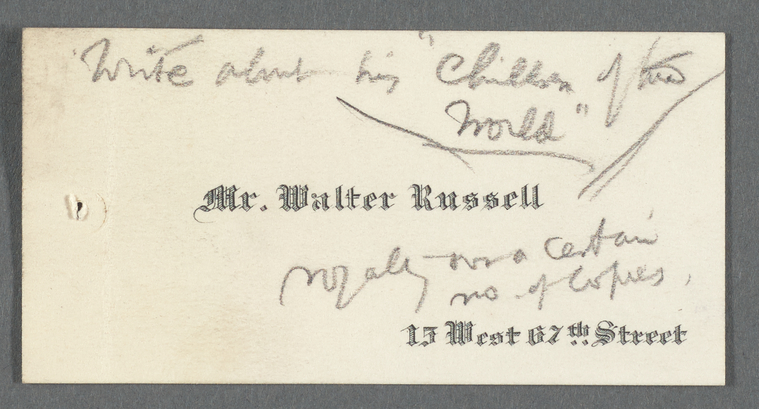 Write about his "Children of the
World"
Mr. Walter Russell
royalty over a certain
no. of copies.
15 West 67th Street